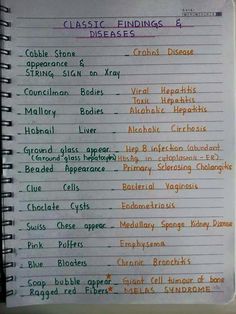 CLASSIC FINDINGS &
DISEASES
Cobble Stone - Crohns Disease
appearance &
STRING SIGN on Xray
Councilman Bodies - Viral Hepatitis
Toxic Hepatitis
Mallory Bodies - Alcoholic Hepatitis
Hobnail Liver - Alcoholic Cirrhosis
Ground glass appear - Hep B infection (abundant
(Ground glass hepatocytes) HbsAg in cytoplasma - ER).
Beaded Appearance - Primary Sclerosing Cholangitis
Clue Cells - Bacterial Vaginosis
Choclate Cysts - Endometriosis
Swiss Chese appear - Medullary Sponge Kidney Disease
Pink Puffers - Emphysema
Blue Bloaters - Chronic Bronchitis
Soap bubble appear* - Giant Cell tumour of bone
Ragged red Fibers* - MELAS SYNDROME